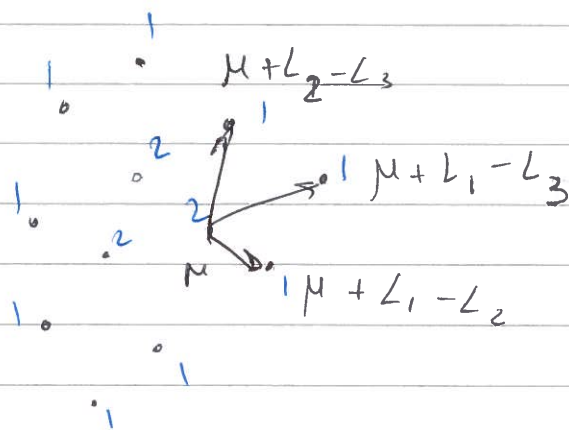 1
1 μ + L₂ - L₃
1
2
1 μ + L₁ - L₃
2
1
2
μ
1 μ + L₁ - L₂
1
1
1